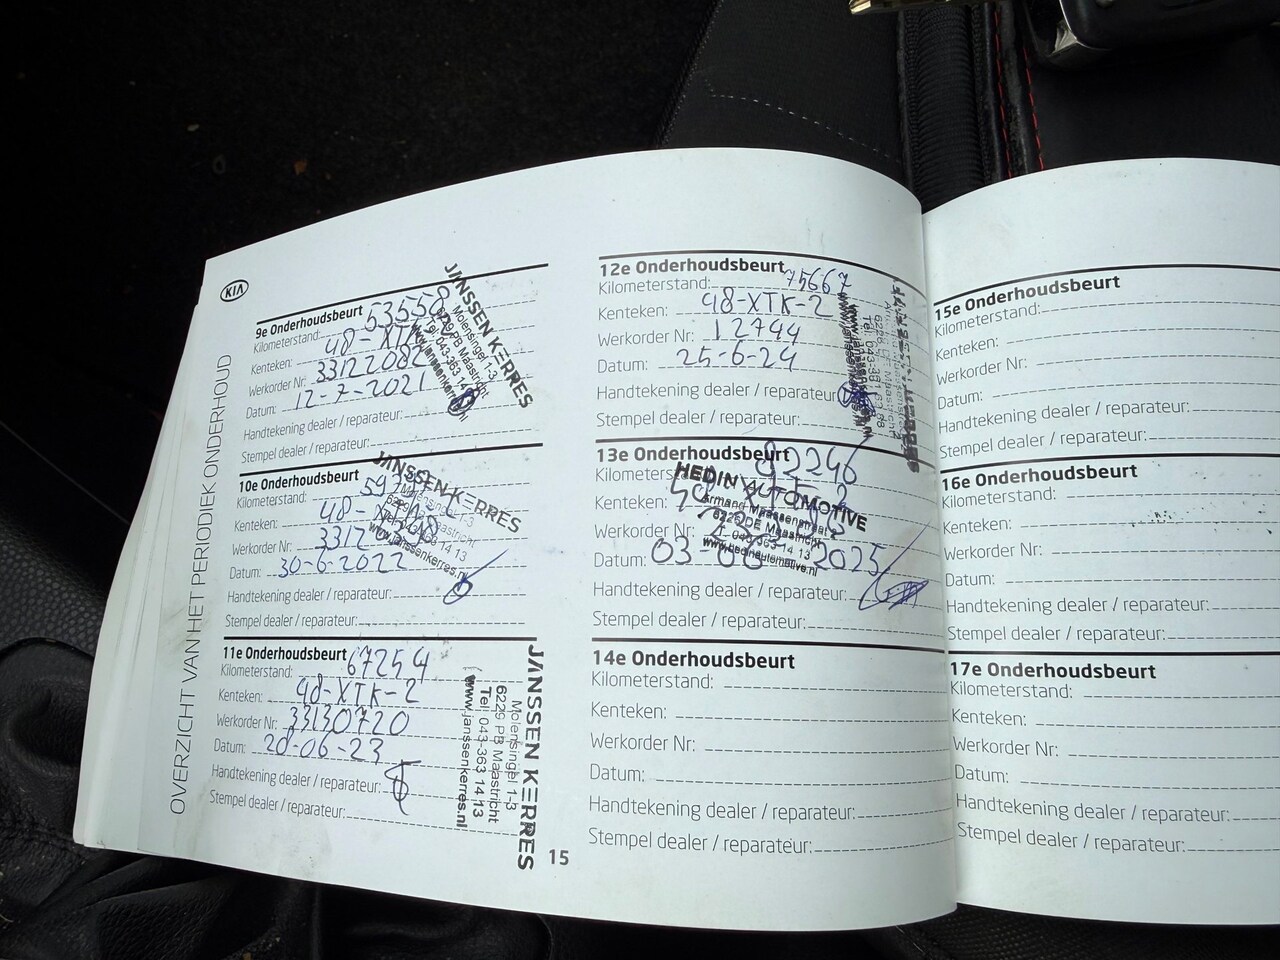 KIA
OVERZICHT VAN HET PERIODIEK ONDERHOUD
9e Onderhoudsbeurt
Kilometerstand: 53558
Kenteken: 48-XTK
Werkorder Nr: 33122082
Datum: 12-7-2021
Handtekening dealer / reparateur:
Stempel dealer / reparateur:
JANSSEN KERRES
Molensingel 1-3
6229 PB Maastricht
Tel. 043-363 14 13
www.janssenkerres.nl
10e Onderhoudsbeurt
Kilometerstand:
Kenteken: 48-
Werkorder Nr:
Datum: 30-6-2022
Handtekening dealer / reparateur:
Stempel dealer / reparateur:
JANSSEN KERRES
Molensingel 1-3
6229 PB Maastricht
Tel. 043-363 14 13
www.janssenkerres.nl
11e Onderhoudsbeurt
Kilometerstand: 67254
Kenteken: 48-XTK-2
Werkorder Nr: 33130720
Datum: 20-06-23
Handtekening dealer / reparateur:
Stempel dealer / reparateur:
JANSSEN KERRES
Molensingel 1-3
6229 PB Maastricht
Tel. 043-363 14 13
www.janssenkerres.nl
15
12e Onderhoudsbeurt
Kilometerstand: 75667
Kenteken: 48-XTK-2
Werkorder Nr: 12744
Datum: 25-6-24
Handtekening dealer / reparateur:
Stempel dealer / reparateur:
13e Onderhoudsbeurt
Kilometerstand: 82246
Kenteken:
Werkorder Nr:
Datum: 03-06-2025
Handtekening dealer / reparateur:
Stempel dealer / reparateur:
HEDIN AUTOMOTIVE
Armand Maassenstraat
6225 DE Maastricht
043-363 14 13
www.hedinautomotive.nl
14e Onderhoudsbeurt
Kilometerstand:
Kenteken:
Werkorder Nr:
Datum:
Handtekening dealer / reparateur:
Stempel dealer / reparateur:
15e Onderhoudsbeurt
Kilometerstand:
Kenteken:
Werkorder Nr:
Datum:
Handtekening dealer / reparateur:
Stempel dealer / reparateur:
16e Onderhoudsbeurt
Kilometerstand:
Kenteken:
Werkorder Nr:
Datum:
Handtekening dealer / reparateur:
Stempel dealer / reparateur:
17e Onderhoudsbeurt
Kilometerstand:
Kenteken:
Werkorder Nr:
Datum:
Handtekening dealer / reparateur:
Stempel dealer / reparateur: